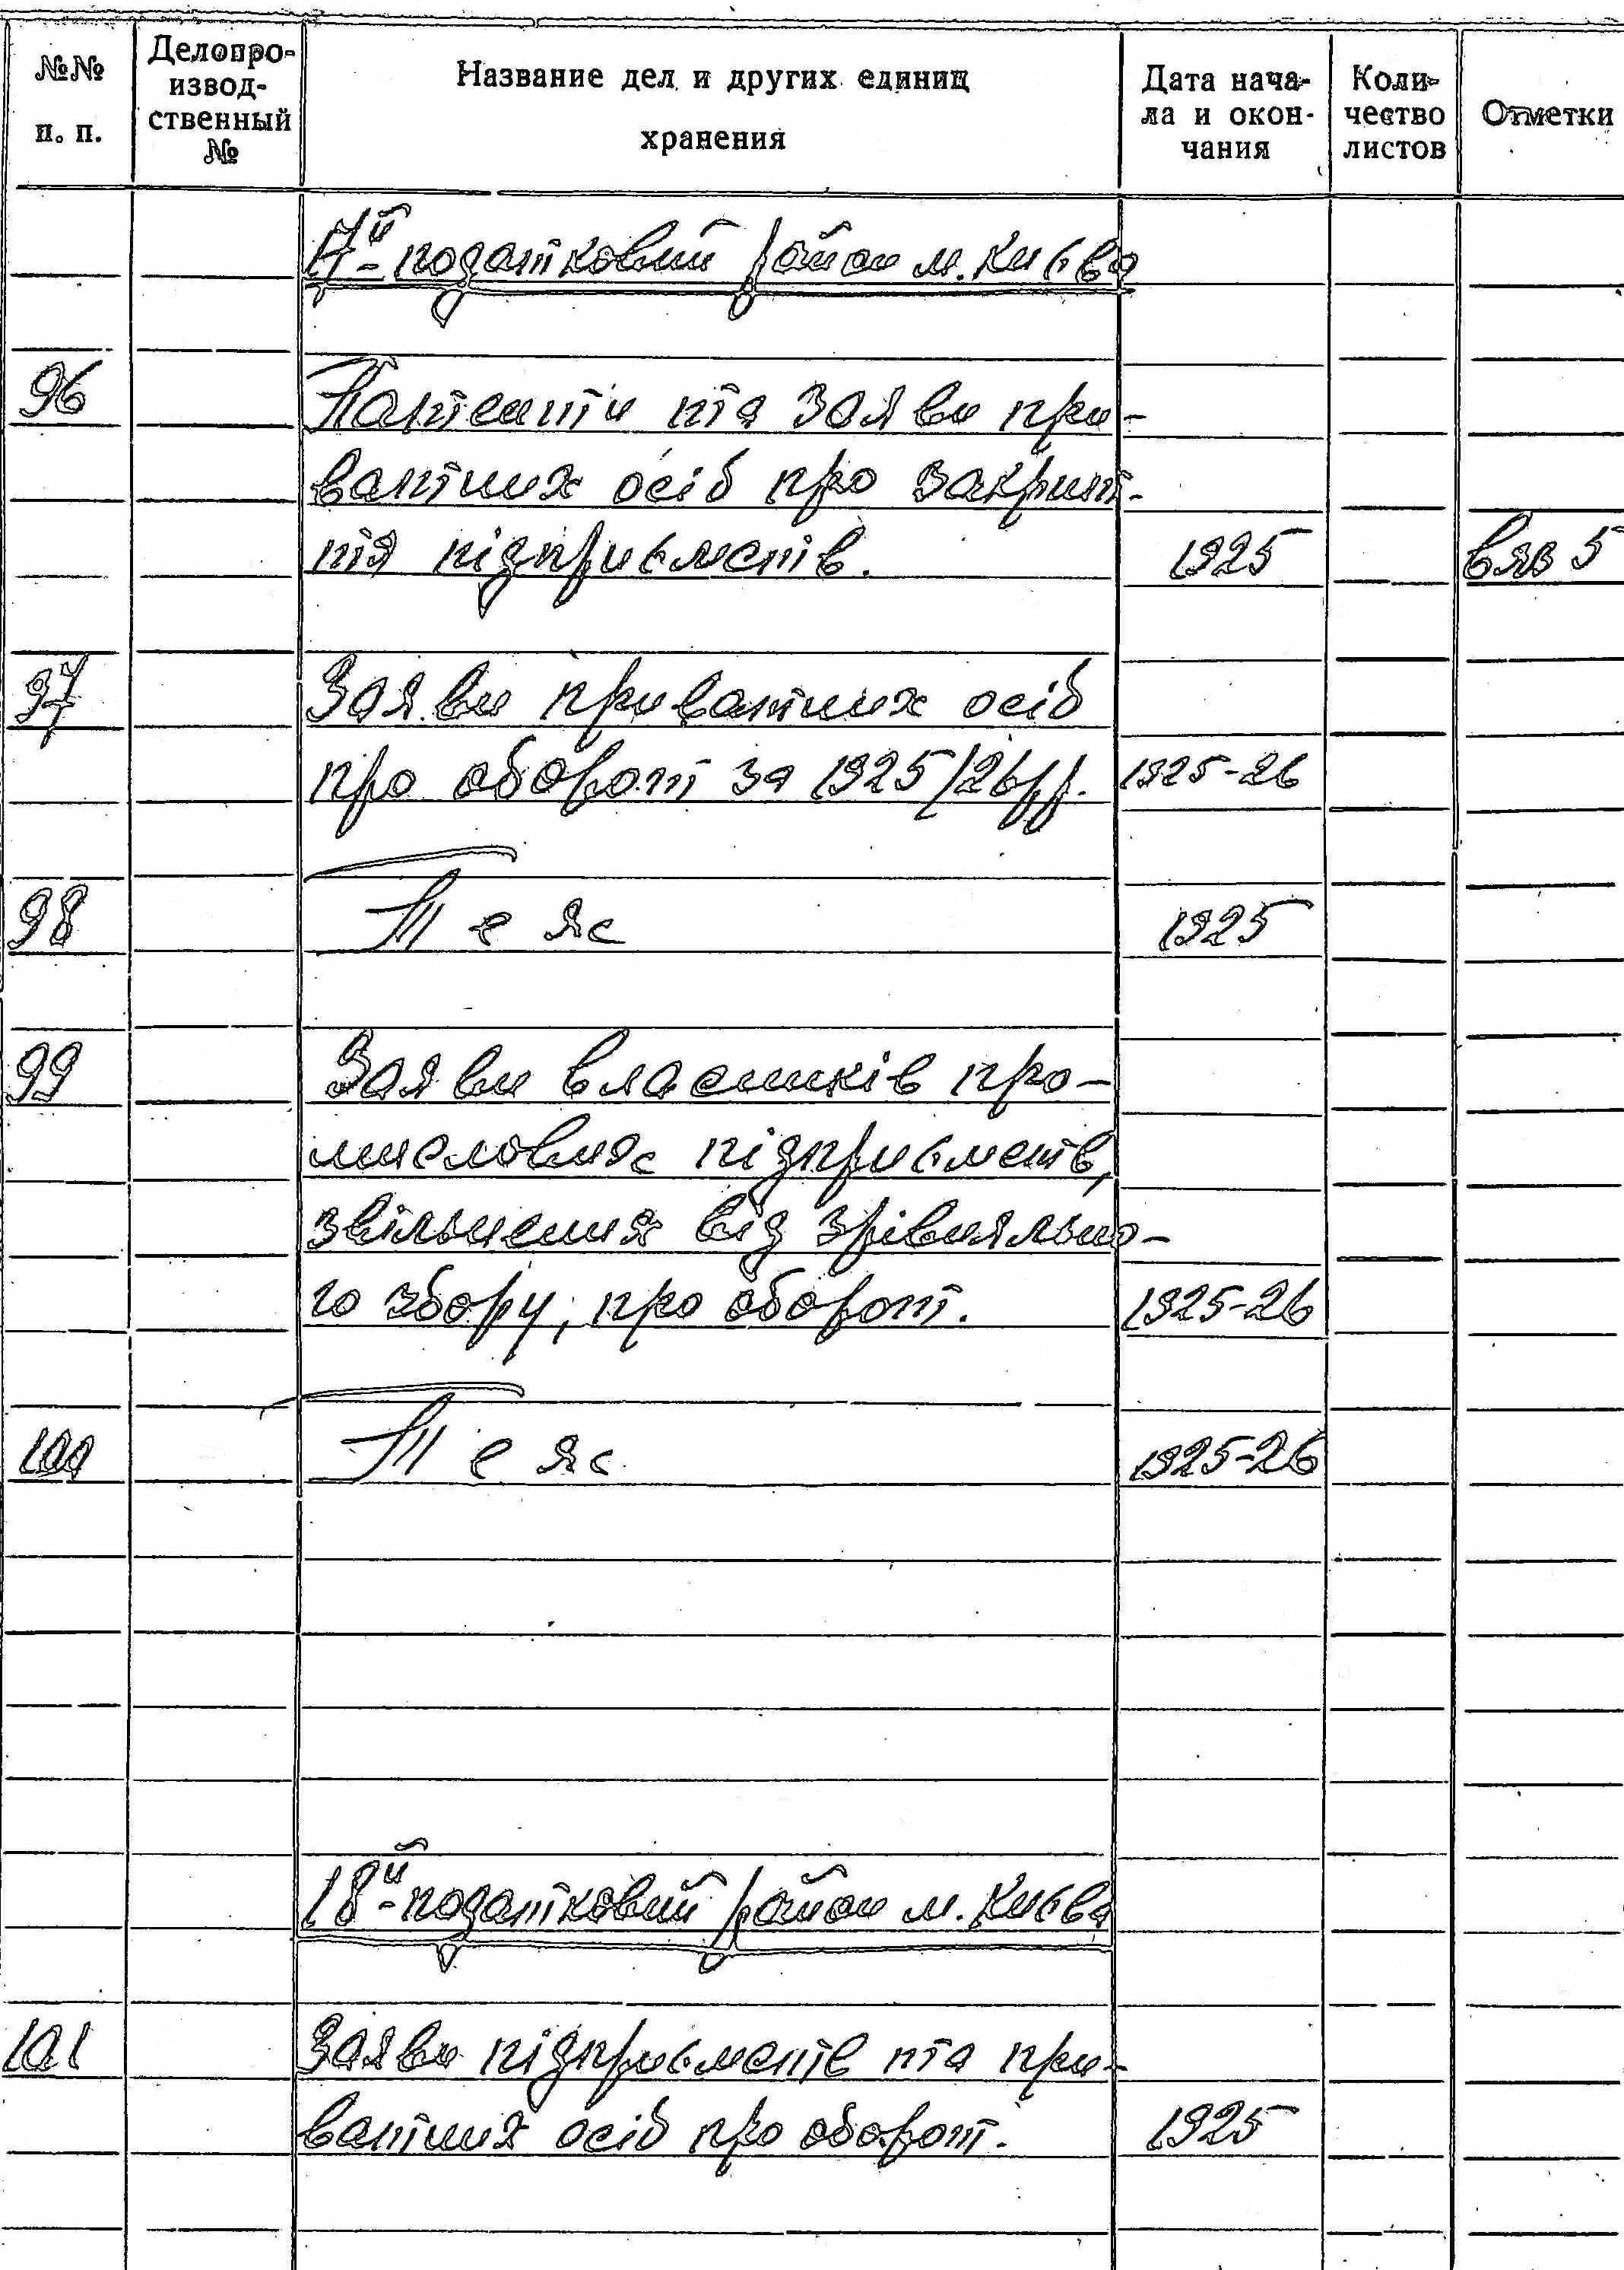 №№ п. п. Делопроизводственный № Название дел и других единиц хранения Дата начала и окончания Количество листов Отметки
17й- податковий район м. Києва
96 Патенти та заяви при-
ватних осіб про закрит-
тя підприємств. 1925 вяз 5
97 Заяви приватних осіб
про оборот за 1925/26рр. 1925-26
98 Теж 1925
99 Заяви власників про-
мислових підприємств,
звільнених від зрівняльно-
го збору, про оборот. 1925-26
100 Теж 1925-26
18й- податковий район м. Києва
101 Заяви підприємств та при-
ватних осіб про оборот. 1925